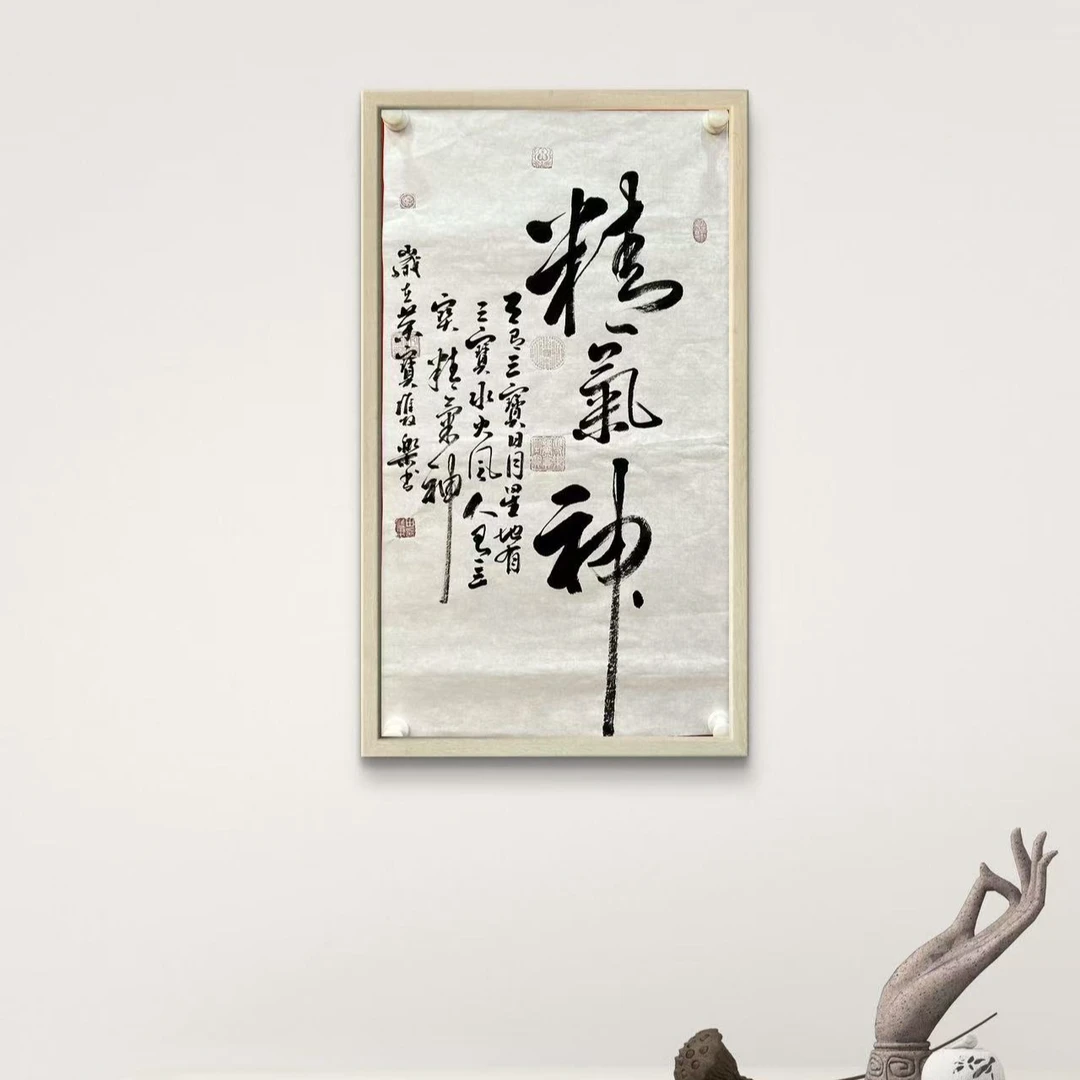 精氣神
天有三寶日月星地有
三寶水火風人有三
寶精氣神
歲在榮寶樂書